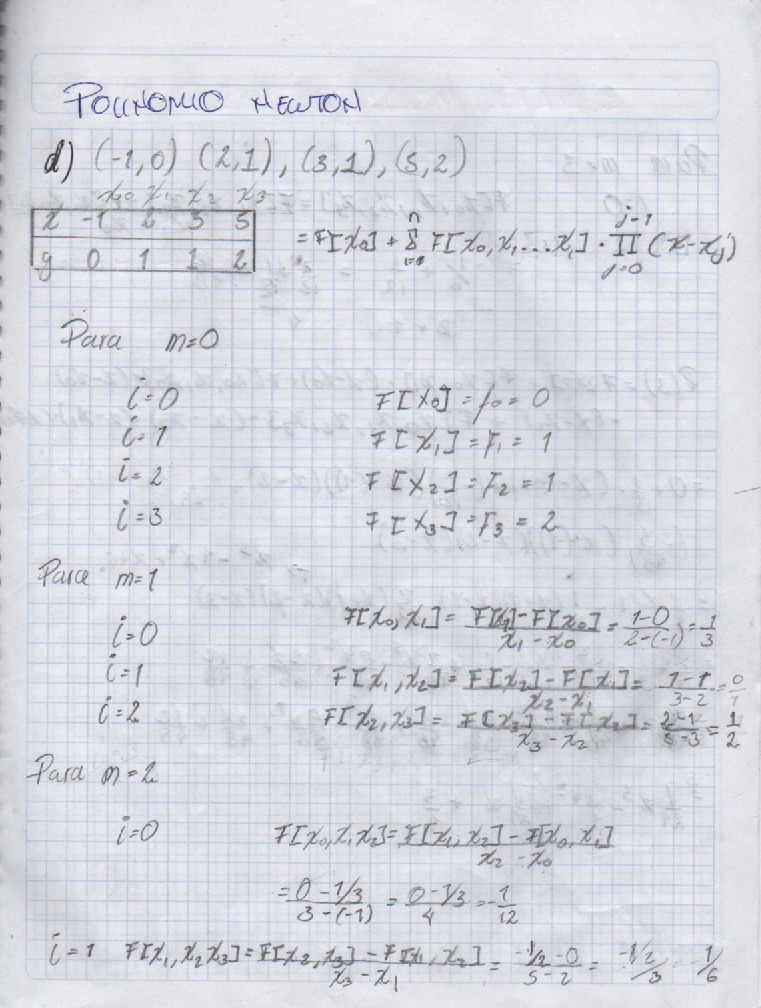 POLINOMIO NEWTON
d) (-1,0) (2,1), (3,1), (5,2)
x0 x1 x2 x3
x -1 2 3 5
y 0 1 1 2
= F[x0] + Σ n i=0 F[x0, x1 ... xi] · Π j-1 j=0 (x-xj)
Para m=0
i=0 F[x0] = f0 = 0
i=1 F[x1] = F1 = 1
i=2 F[x2] = F2 = 1
i=3 F[x3] = F3 = 2
Para m=1
i=0 F[x0, x1] = F[x1]-F[x0] / x1-x0 = 1-0 / 2-(-1) = 1/3
i=1 F[x1, x2] = F[x2]-F[x1] / x2-x1 = 1-1 / 3-2 = 0/1
i=2 F[x2, x3] = F[x3]-F[x2] / x3-x2 = 2-1 / 5-3 = 1/2
Para m=2
i=0 F[x0, x1 x2] = F[x1, x2] - F[x0, x1] / x2-x0
= 0-1/3 / 3-(-1) = 0-1/3 / 4 = -1/12
i=1 F[x1, x2 x3] = F[x2, x3] - F[x1, x2] / x3-x1 = -1/2-0 / 5-2 = -1/2 / 3 -1/6